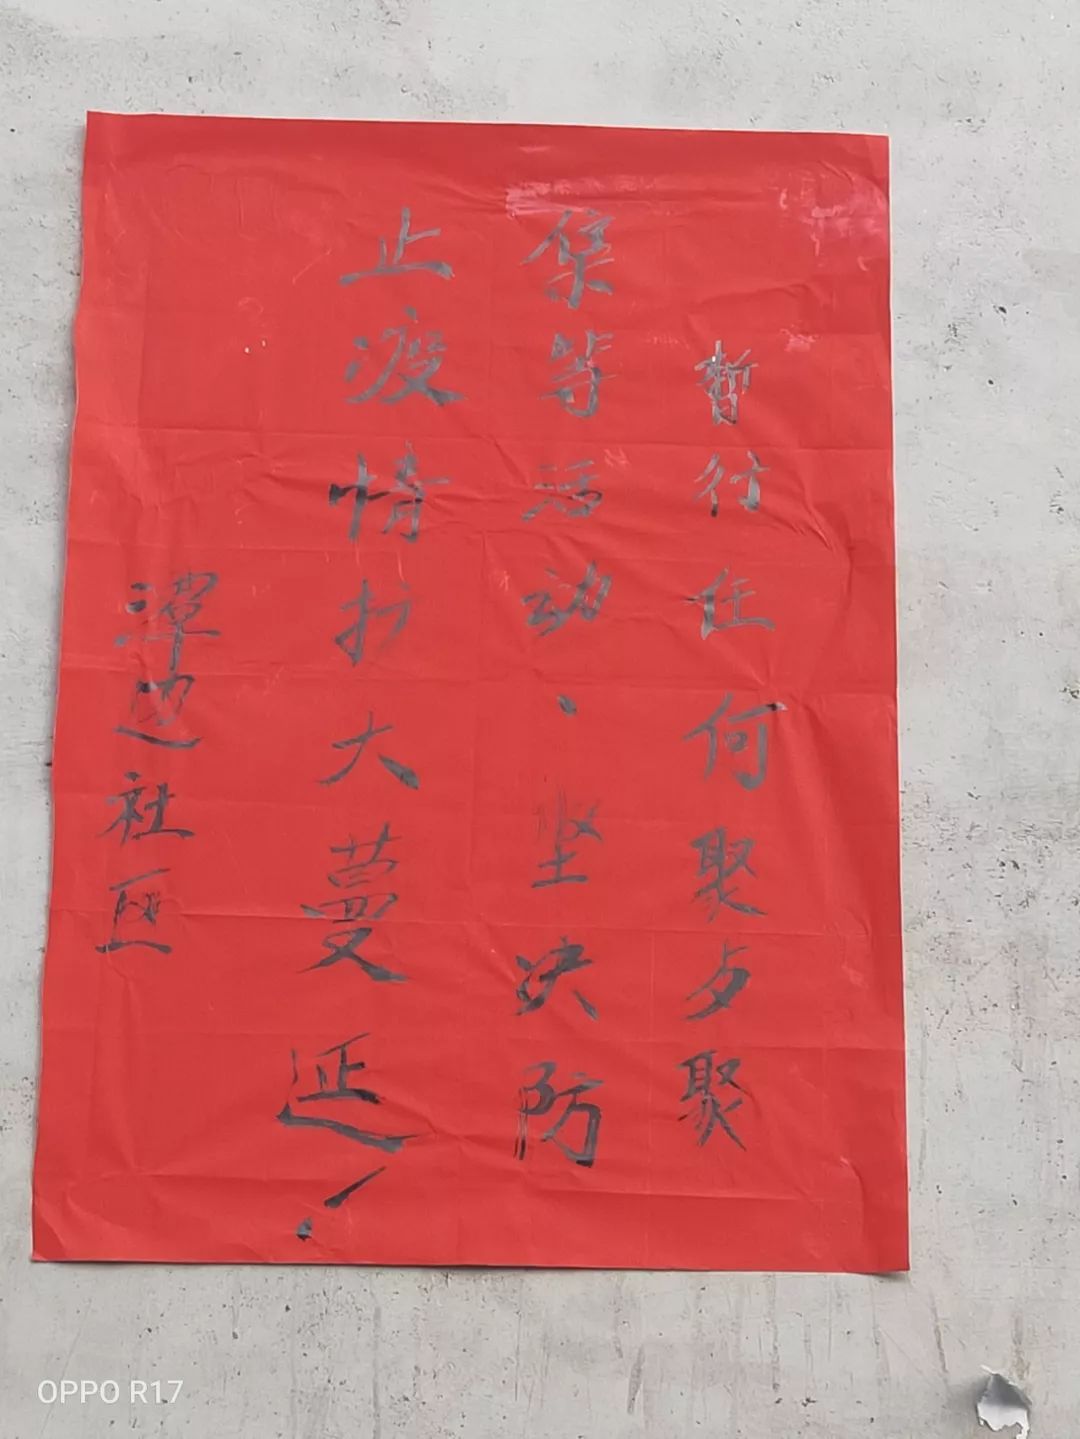 暂行任何聚歺聚
集等活动、坚决防
止疫情扩大蔓延！
潭边社区
OPPO R17